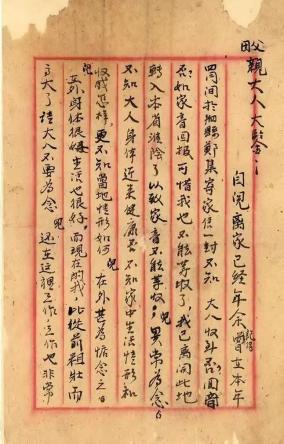 父母
親大人大鑒:
自兒離家已經年余 記得曾在本年
四月间於泗縣鄭集寄家信一封不知 大人收到否？回音
否？如家音回报可惜我也不能等收了，我已离開此地
轉入本省淮陰了以致家音不能等收，兒異常為念
不知大人身体近来健康否 不知家中生活情形和
收成怎樣，更不知當地情形如何 兒在外甚為惦念
兒在外身体很好生活也很好，而現在的我，比從前粗壯而
高大了 請大人不要為念 兒还在這裡工作，工作也非常